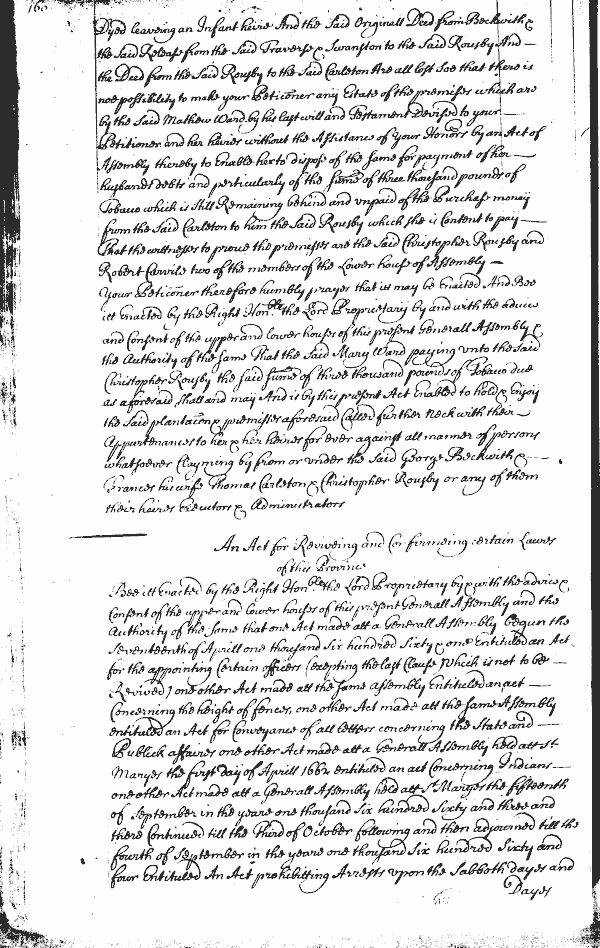 160
Dyed leaveing an Infant heire And the Said Originall Deed from Beckwith &
the Said Release from the Said Traverse & Swanston to the Said Rousby And
the Deed from the Said Rousby to the Said Carleton Are all lost Soe that there is
noe possibility to make your Peticoner any Estate of the premisses which are
by the Said Mathew Ward by his last will and Testament Devised to your
Petitioner and her heires without the Assistance of your Honors by an Act of
Assembly thereby to Enable her to dispose of the Same for payment of her
husbands debts and perticularly of the Sume of three thousand pounds of
Tobaco which is Still Remaining behind and unpaid of the Purchase money
from the Said Carleton to him the Said Rousby which she is Content to pay
That the wittnesses to prove the premisses are the Said Christopher Rousby and
Robert Carvile two of the members of the Lower house of Assembly
Your Peticoner therefore humbly prayes that itt may be Enacted And Bee
itt Enacted by the Right Honble the Lord Proprietary by and with the advice
and Consent of the upper and lower houses of this present Generall Assembly &
the Authority of the Same That the Said Mary Ward paying unto the Said
Christopher Rousby the said Sume of three thousand pounds of Tobaco due
as aforesaid Shall and may And is by this present Act Enabled to hold & Enjoy
the Said plantacon & premisses aforesaid Called further Neck with their
Appurtenances to her & her heires for ever against all manner of persons
whatsoever Clayming by from or under the Said George Beckwith &
Frances his wife Thomas Carleton & Christopher Rousby or any of them
their heires Executors & Administrators
An Act for Reviveing and Confirmeing certain Lawes
of this Province
Bee itt Enacted by the Right Honble the Lord Proprietary by & with the advice &
Consent of the upper and lower houses of this present Generall Assembly and the
Authority of the Same that one Act made att a Generall Assembly begun the
Seventeenth of Aprill one thousand Six hundred Sixty & one Entituled an Act
for the appointing Certain officers (excepting the last Clause which is not to be
Revived) one other Act made att the same assembly Entituled an act
Concerning the height of fences, one other Act made att the Same Assembly
entituled an Act for Conveyance of all Letters concerning the State and
Publick affaires one other Act made att a Generall Assembly held att St
Maryes the first day of Aprill 1662 entituled an act Concerning Indians
one other Act made att a Generall Assembly held att St Maryes the fifteenth
of September in the yeare one thousand Six hundred Sixty and three and
there Continued till the Third of October following and then adjourned till the
fourth of September in the yeare one thousand Six hundred Sixty and
four Entituled An Act prohibitting Arrests upon the Sabboth dayes and
Dayes